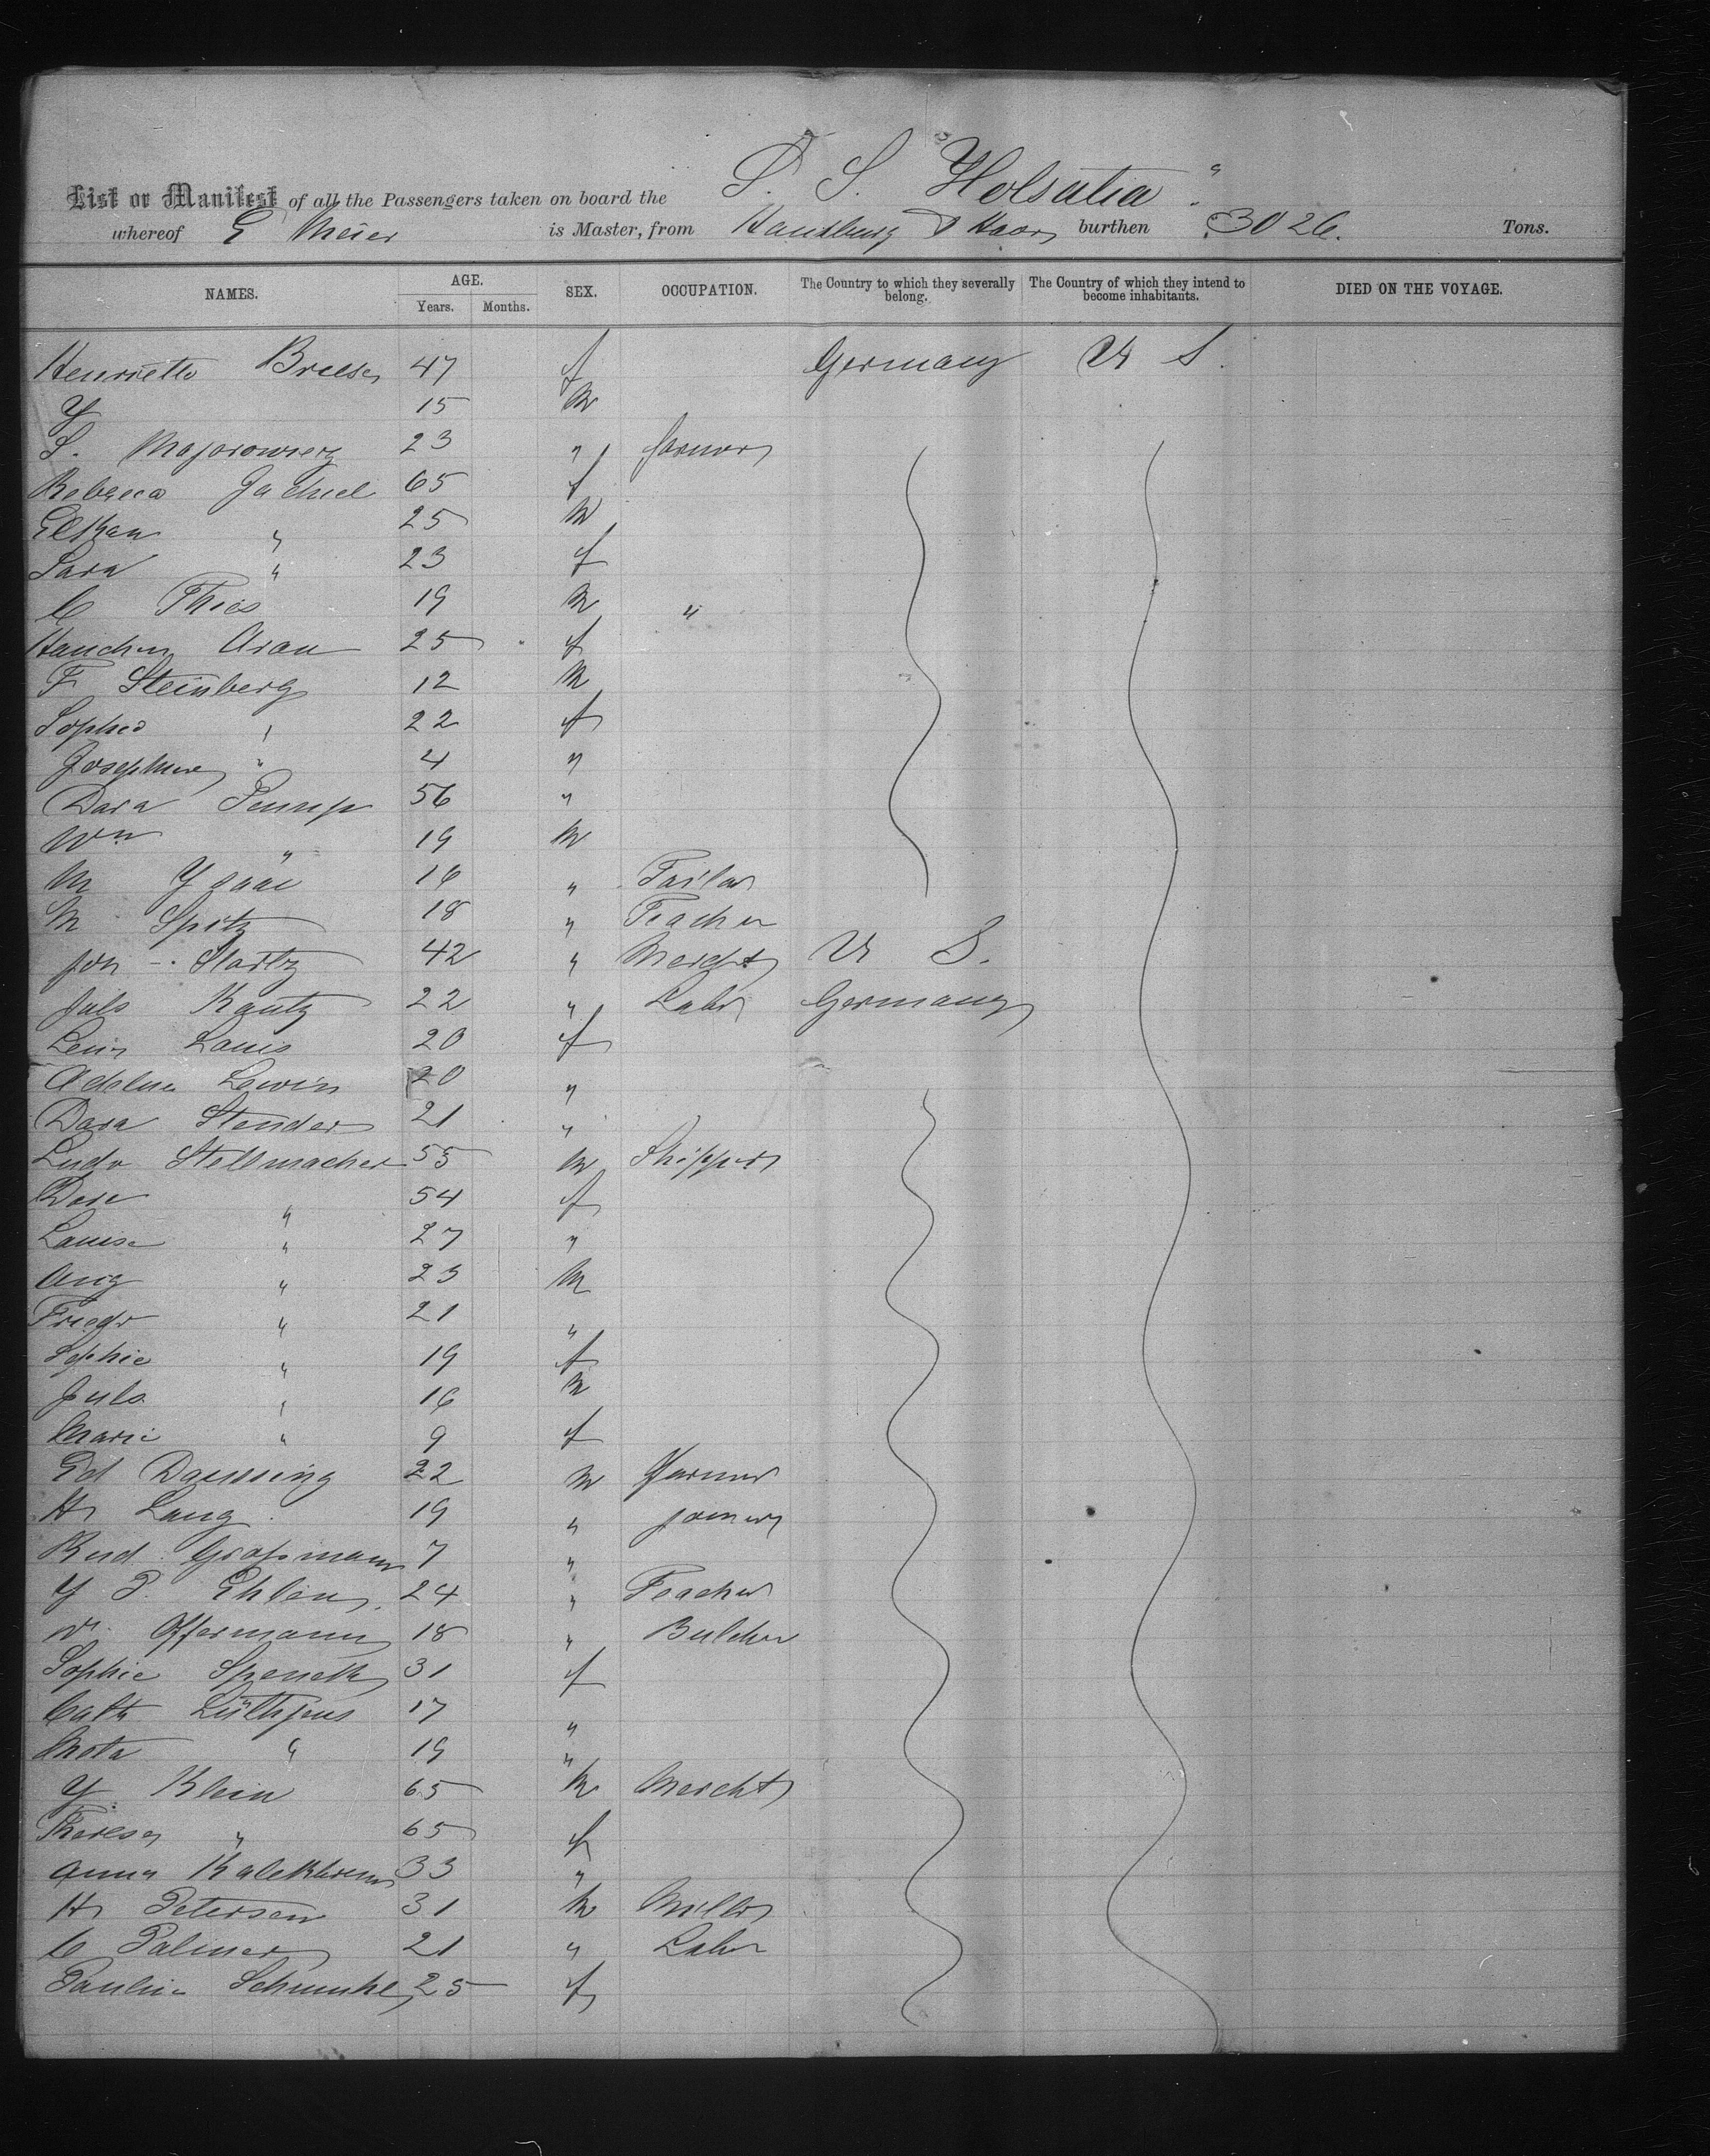 P. S. "Holsatia"
List or Manifest of all the Passengers taken on board the
whereof E Meier is Master, from Hamburg & Havre burthen 3026. Tons.
NAMES. AGE. Years. Months. SEX. OCCUPATION. The Country to which they severally belong. The Country of which they intend to become inhabitants. DIED ON THE VOYAGE.
Henriette 47 f Germany U S.
Y 15 M
S. 23 " farmer
Rebecca 65 f
Elkan " 25 M
Sara " 23 f
C Thies 19 M "
25 f
F Steinberg 12 M
Sophie " 22 f
Josephine " 4 "
Dora 56 "
Wm " 19 M
M 16 " Tailor
M Spitz 18 " Teacher
42 " Mercht U S.
Juls Kautz 22 " Labr Germany
Louis 20 f
Lewin 20 "
Dora Stender 21 "
Ludv Stellmacher 55 M Shipper
Dora " 54 f
Louise " 27 "
Aug " 23 M
Friedr " 21 "
Sophie " 19 f
Juls " 16 M
Marie " 9 f
Ed 22 M Farmer
H Lang 19 " joiner
Rud. Großmann 7 "
Y P. 24 " Teacher
W. Offermann 18 " Butcher
Sophie 31 f
Cath Lüthjens 17 "
Meta " 19 "
Y. Klein 65 M Mercht
Therese " 65 f
Anna 33 "
H Petersen 31 M Miller
C Palmer 21 " Labr
Pauline 25 f